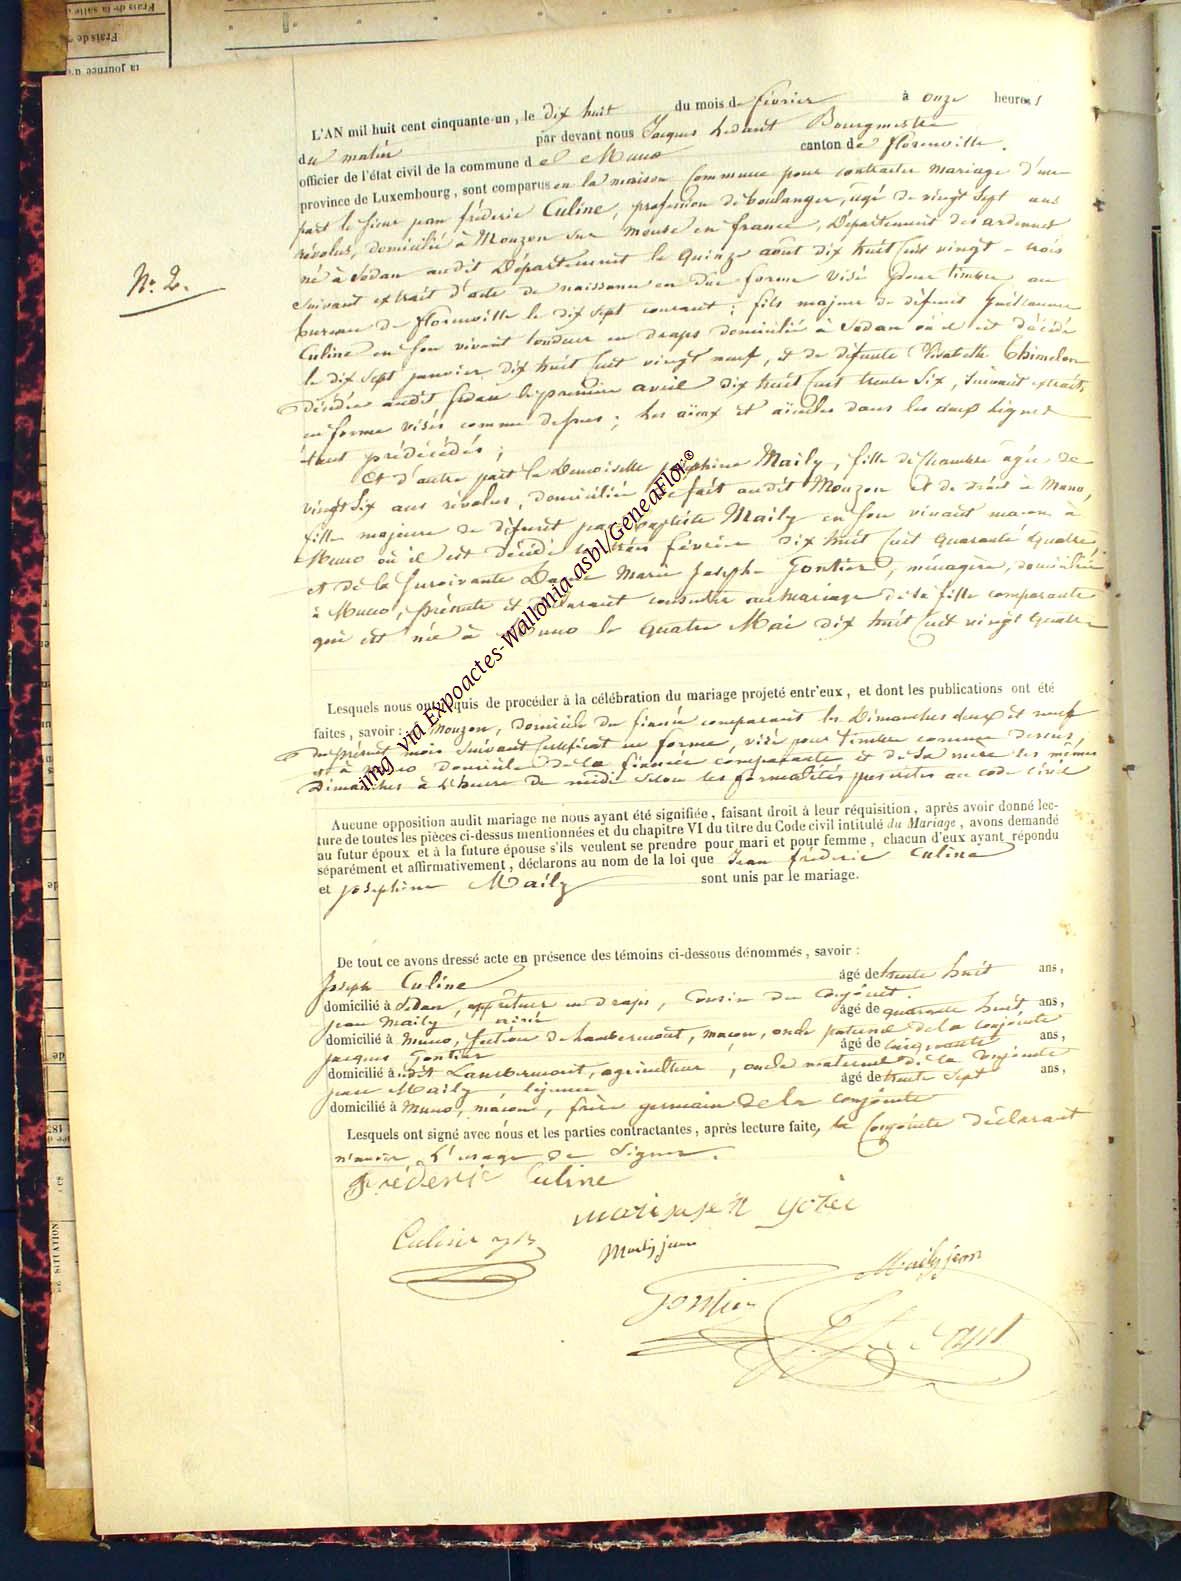 Frais de la salle d
Frais de
la journée d'e
L'AN mil huit cent cinquante-un, le dix huit du mois de février à onze heures
du matin par devant nous Jacques Ledant Bourgmestre
officier de l'état civil de la commune d e Muno canton de florenville.
province de Luxembourg, sont comparus en la maison Commune pour contracter mariage d'une
part le sieur jean fréderic Culine, profession de boulanger, agé de vingt sept ans
révolus, domicilié à Mouzon sur meuse en france, Département des ardennes
né à Sedan audit Département le Quinze août dix huit Cent vingt-trois
Suivant extrait d'acte de naissance en due forme visé pour timbre au
bureau de florenville le dix sept courant; fils majeur de défunt guillaume
Culine en son vivant tondeur en draps domicilié à Sedan où il est décédé
le dix sept janvier dix huit Cent vingt neuf, et de défunte Chimelon
décédée audit Sedan le premier avril dix huit Cent trente Six, Suivant extraits
en forme visés comme dessus; les aïeux et aïeules dans les deux lignes
étant prédécédés;
Et d'autre part la Demoiselle joséphine Maily, fille de Chambre agée de
vingt Six ans révolus, domiciliée de fait audit Mouzon et de droit à Muno,
fille majeure de défunt jean baptiste Maily en son vivant macon à
Muno où il est décédé le trois février dix huit Cent quarante quatre
et de la Survivante Dame Marie joseph Gontier, ménagère, domiciliée
à Muno, présente et déclarant consentir au mariage de sa fille comparante
qui est née à Muno le quatre Mai dix huit Cent vingt quatre
N.° 2.
Lesquels nous ont requis de procéder à la célébration du mariage projeté entr'eux, et dont les publications ont été
faites, savoir: à Mouzon, domicile du fiancé comparant les Dimanches deux et neuf
du présent mois Suivant Certificat en forme, visé pour timbre comme dessus,
et à Muno domicile de la fiancée comparante et de Sa mère les mêmes
Dimanches à l'heure de midi Selon les formalités prescrites au code Civil
Aucune opposition audit mariage ne nous ayant été signifiée, faisant droit à leur réquisition, après avoir donné lec-
ture de toutes les pièces ci-dessus mentionnées et du chapitre VI du titre du Code civil intitulé du Mariage, avons demandé
au futur époux et à la future épouse s'ils veulent se prendre pour mari et pour femme, chacun d'eux ayant répondu
séparément et affirmativement, déclarons au nom de la loi que Jean fréderic Culine
et joséphine Maily sont unis par le mariage.
De tout ce avons dressé acte en présence des témoins ci-dessous dénommés, savoir:
Joseph Culine âgé de trente huit ans,
domicilié à Sedan, en draps, Cousin du conjoint.
jean Maily ainé âgé de quarante huit ans,
domicilié à Muno, Section de lambermont, maçon, oncle paternel de la conjointe
jacques Gontier âgé de cinquante ans,
domicilié à dit Lambermont, agriculteur, oncle maternel de la conjointe
jean Maily le jeune âgé de trente Sept ans,
domicilié à Muno, maçon, frère germain de la conjointe
Lesquels ont signé avec nous et les parties contractantes, après lecture faite, la Conjointe déclarant
n'avoir l'usage de Signer.
Fréderic Culine
Culine
Maily jean
Maily jean
Gontier
J. Ledant
img via Expoactes-Wallonia asbl/GeneaFlor©